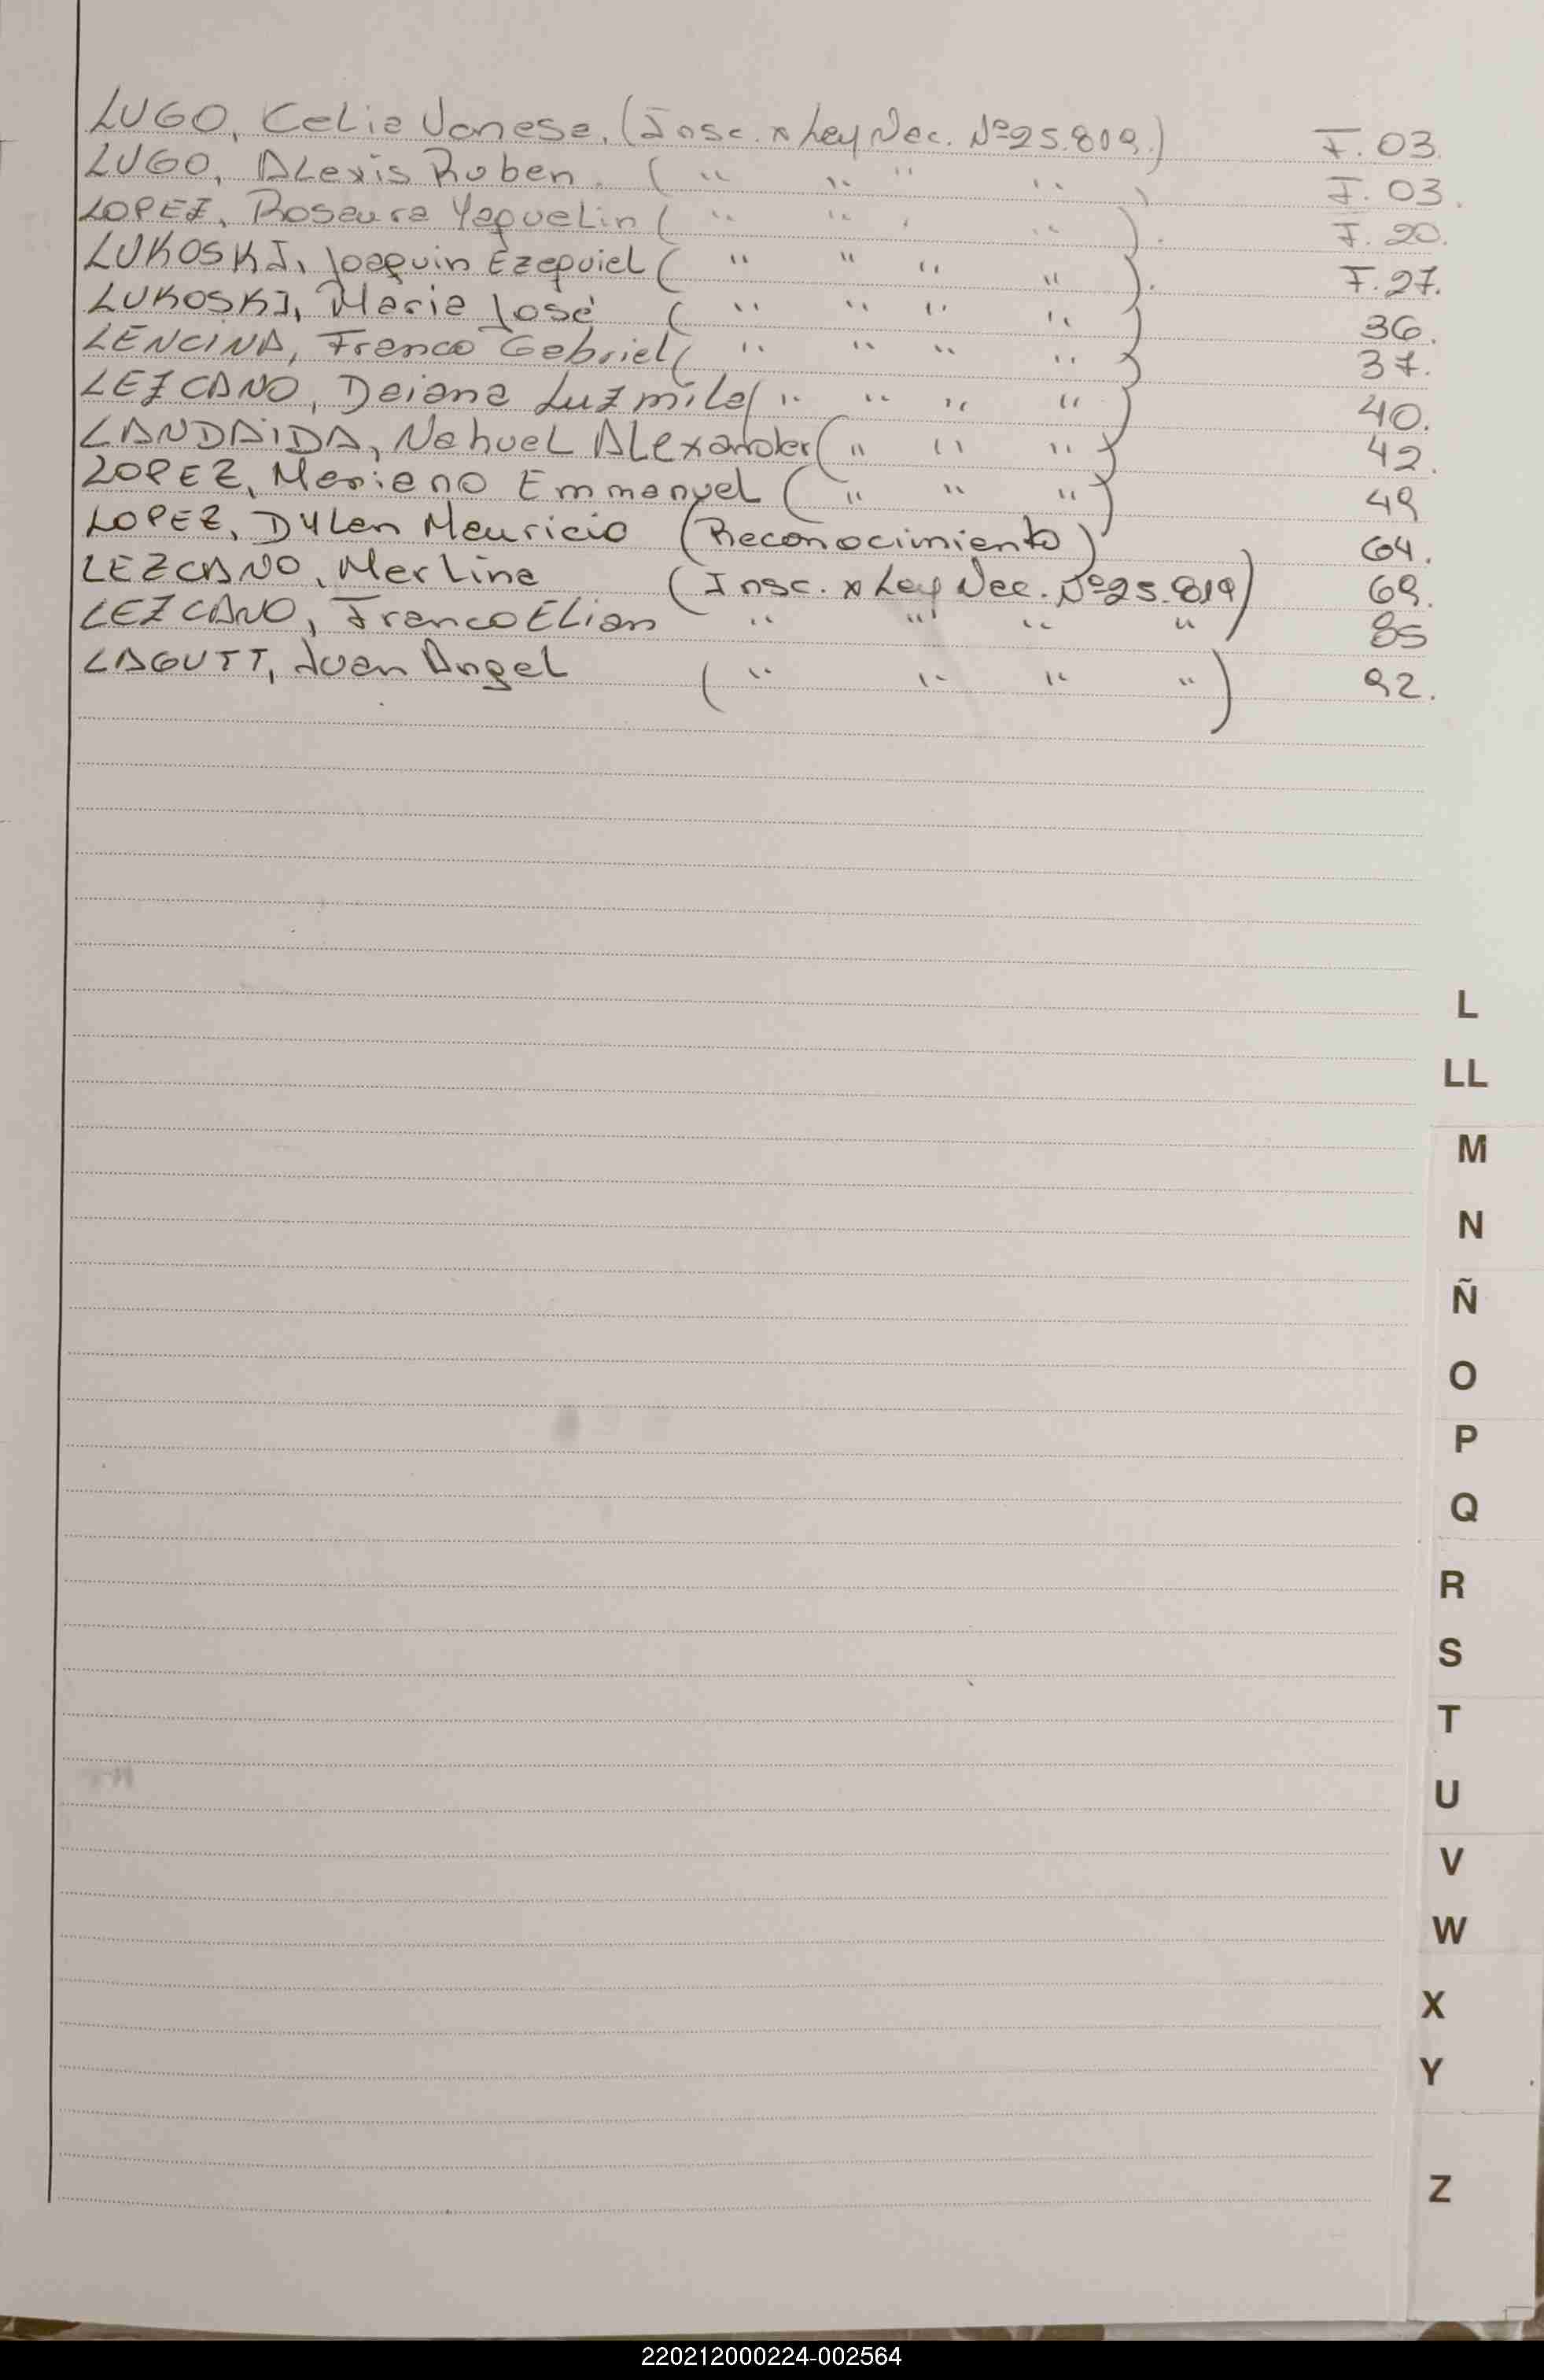 LUGO, Celia Vanesa. (Insc. x Ley Nac. Nº 25.819.) F. 03.
LUGO, Alexis Ruben. ( " " " " ) F. 03.
LOPEZ, Rosaura Yaquelin ( " " " " ). F. 20.
LUKOSKI, Joaquin Ezequiel ( " " " " ). F. 27.
LUKOSKI, Maria José ( " " " " ) 36.
LENCINA, Franco Gabriel ( " " " " ) 37.
LEZCANO, Daiana Luzmila ( " " " " ) 40.
LANDAIDA, Nahuel Alexander ( " " " ) 42.
LOPEZ, Mariano Emmanuel ( " " " ) 49
LOPEZ, Dylan Mauricio (Reconocimiento) 64.
LEZCANO, Merlina (Insc. x Ley Nac. Nº 25.819) 69.
LEZCANO, Franco Elian " " " " ) 85
LAGUTT, Juan Angel ( " " " " ) 92.
L
LL
M
N
Ñ
O
P
Q
R
S
T
U
V
W
X
Y
Z
220212000224-002564